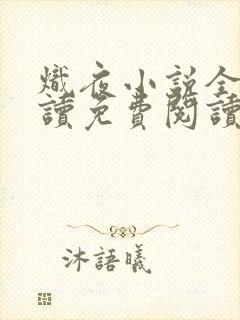 熾夜小說全
讀免費閱讀
沐語曦